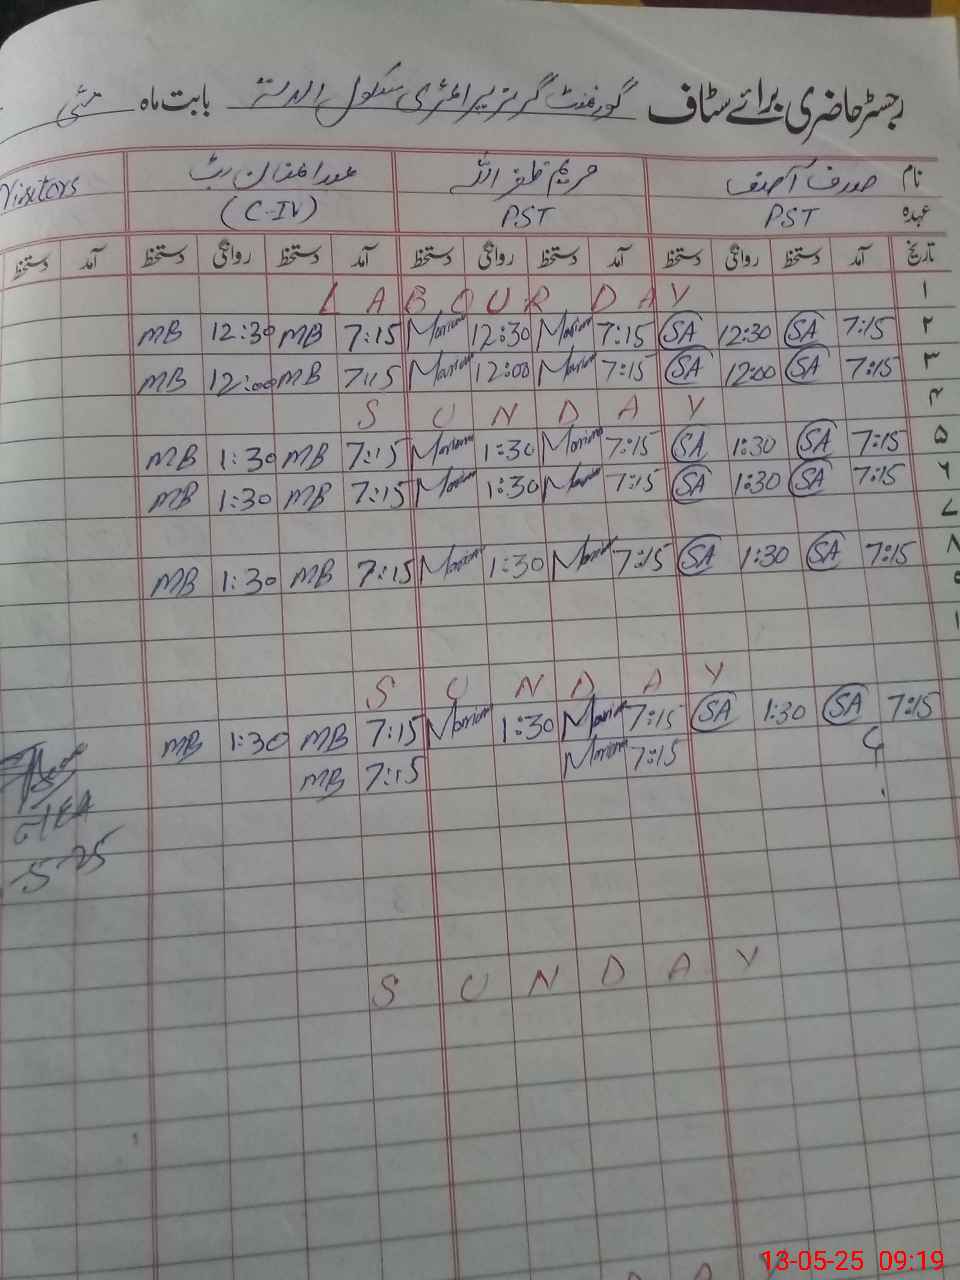 رجسٹر حاضری برائے سٹاف گورنمنٹ گرلز پرائمری سکول بابت ماہ مئی
نام صدف آصف مریم ظفر اللہ Visitors
عہدہ PST PST (C-IV)
تاریخ آمد دستخط روانگی دستخط آمد دستخط روانگی دستخط آمد دستخط روانگی دستخط آمد دستخط
۱ LABOUR DAY
۲ 7:15 SA 12:30 SA 7:15 Mariam 12:30 Mariam 7:15 MB 12:30 MB
۳ 7:15 SA 12:00 SA 7:15 Mariam 12:00 Mariam 7:15 MB 12:00 MB
۴ SUNDAY
۵ 7:15 SA 1:30 SA 7:15 Mariam 1:30 Mariam 7:15 MB 1:30 MB
۶ 7:15 SA 1:30 SA 7:15 Mariam 1:30 Mariam 7:15 MB 1:30 MB
۷
۸ 7:15 SA 1:30 SA 7:15 Mariam 1:30 Mariam 7:15 MB 1:30 MB
۹
SUNDAY
7:15 SA 1:30 SA 7:15 Mariam 1:30 Mariam 7:15 MB 1:30 MB
7:15 Mariam 7:15 MB
SUNDAY
13-05-25 09:19